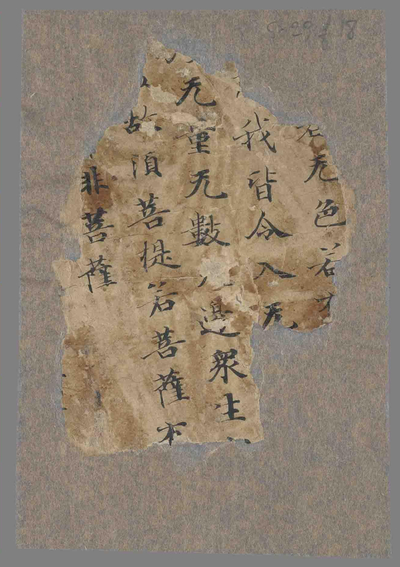 无色若
我皆令入无
无量无數邊衆生
故須菩提若菩薩
非菩薩